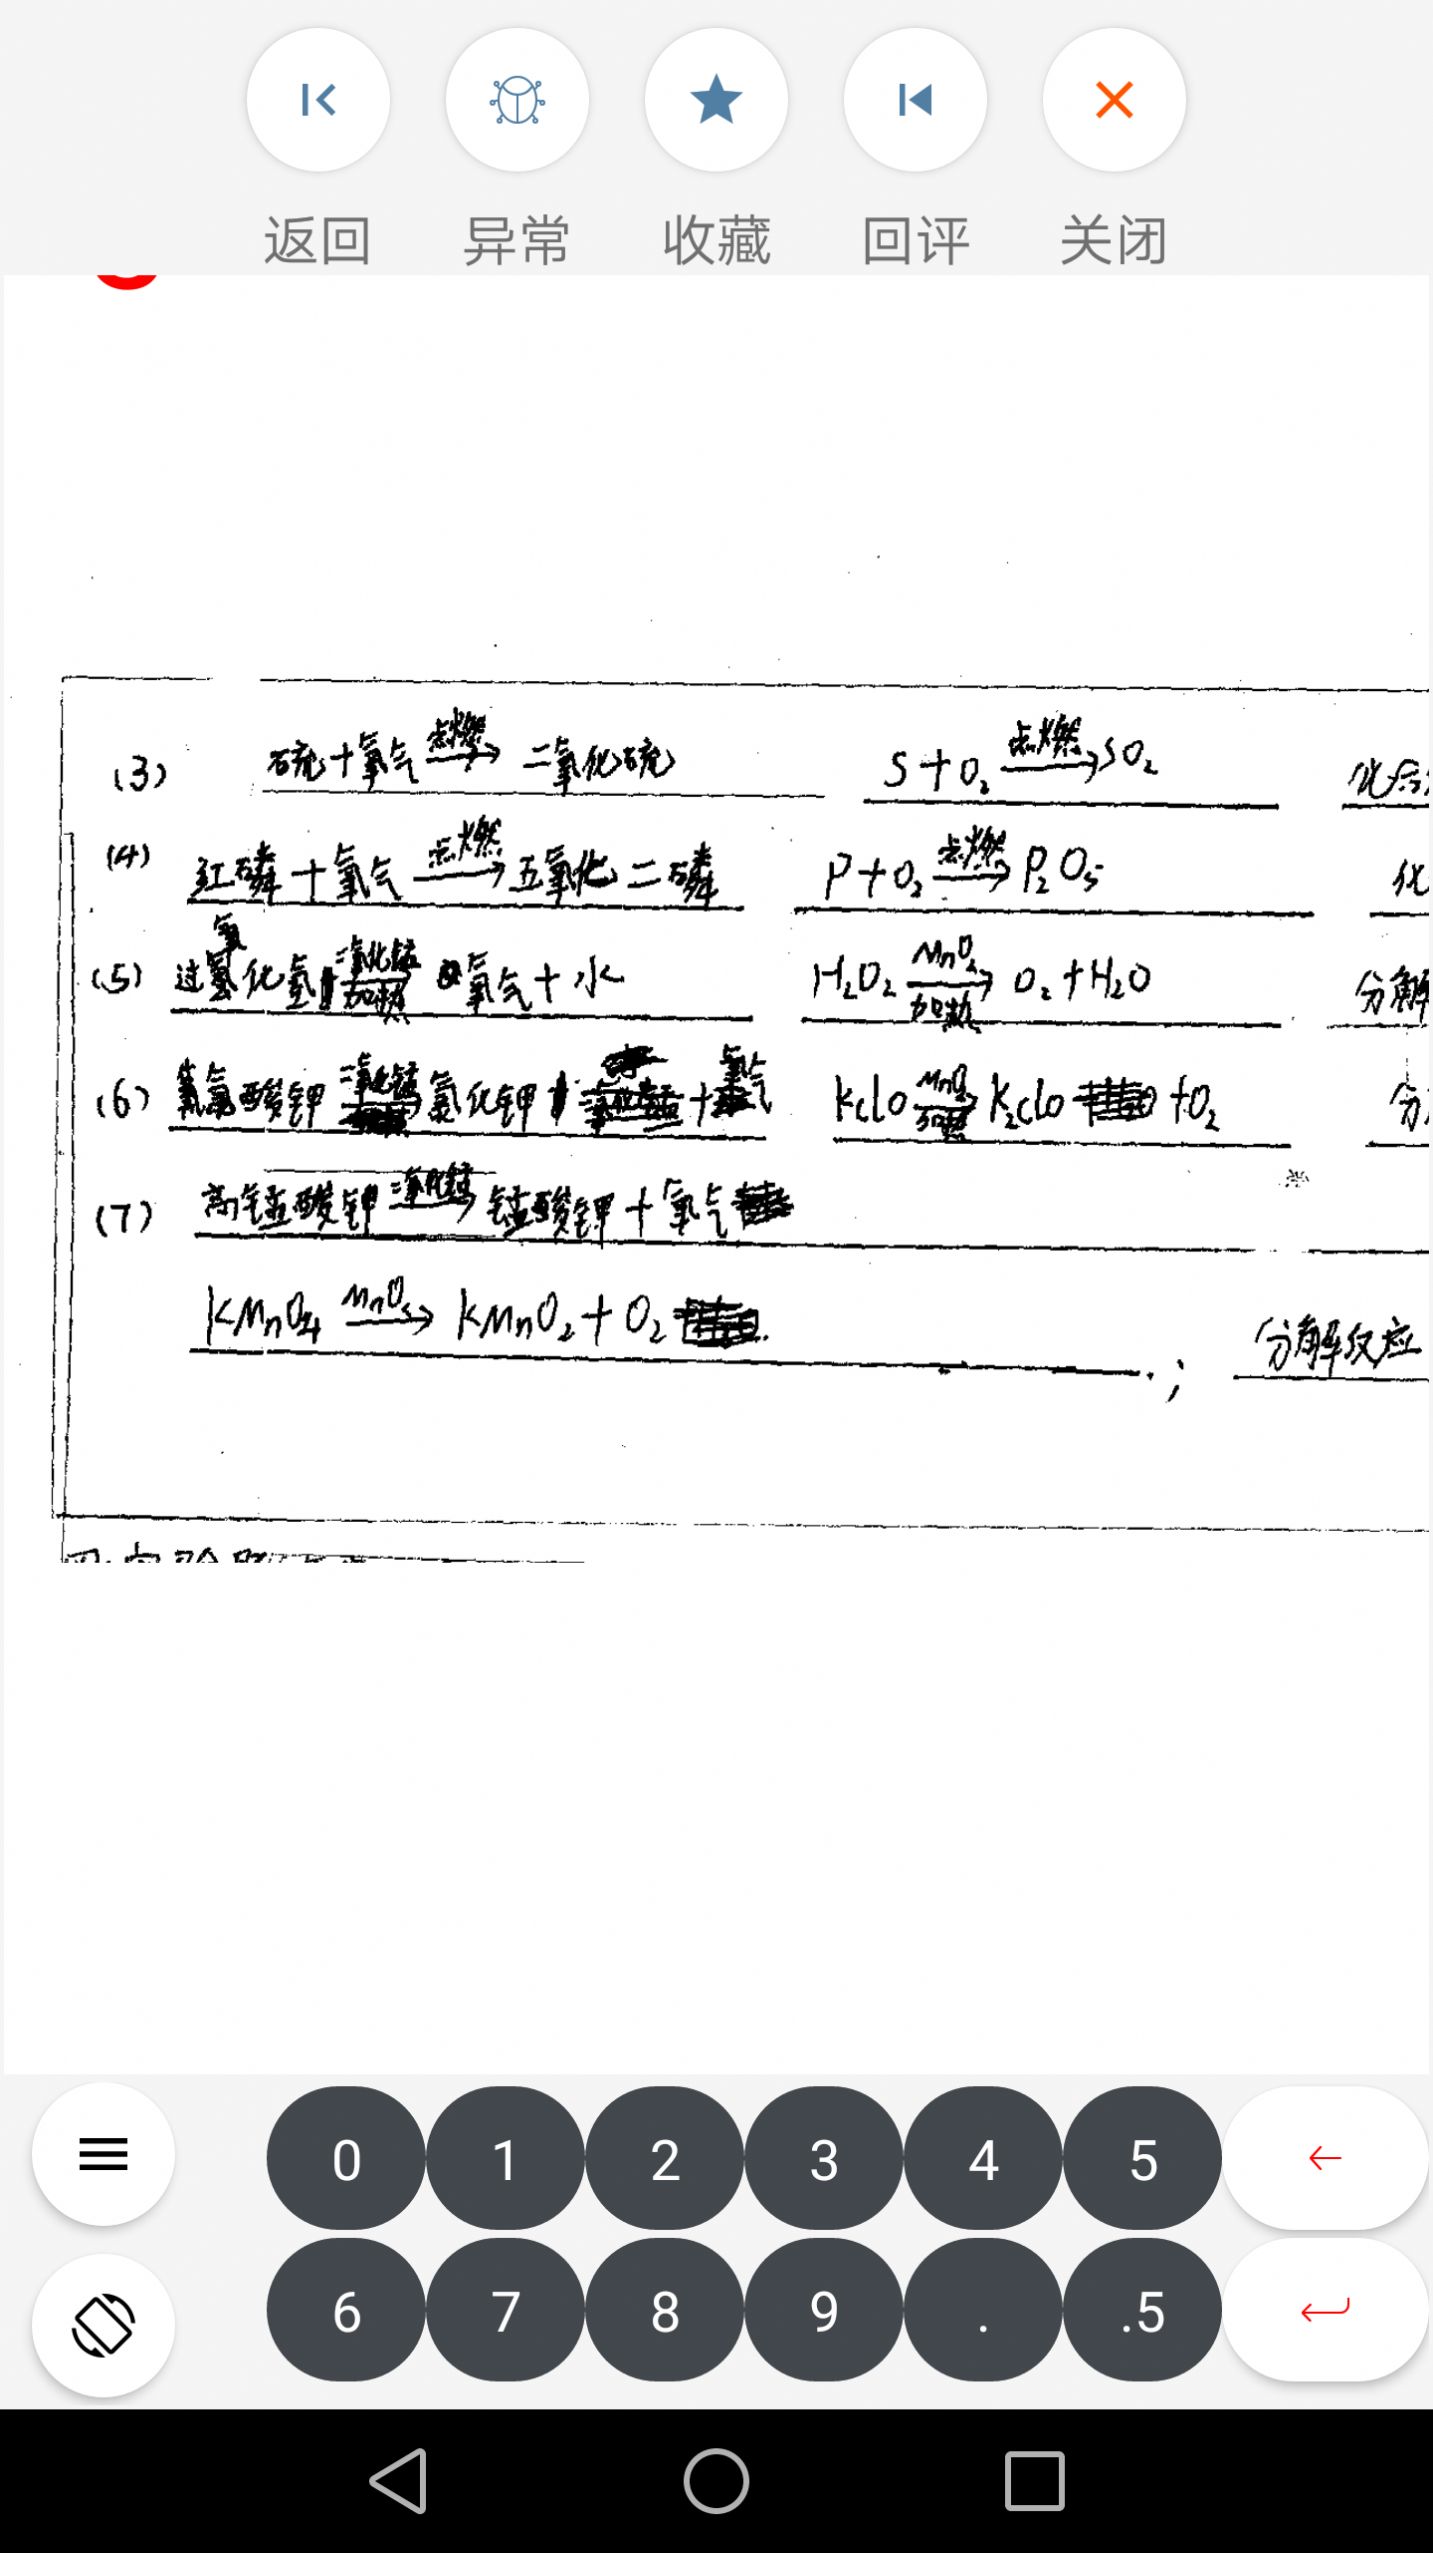 返回 异常 收藏 回评 关闭
(3) 硫+氧气 点燃→ 二氧化硫 S+O₂ 点燃→ SO₂ 化合
(4) 红磷+氧气 点燃→ 五氧化二磷 P+O₂ 点燃→ P₂O₅ 化
(5) 过氧化氢 二氧化锰→加热 氧气+水 H₂O₂ MnO₂→加热 O₂+H₂O 分解
(6) 氯酸钾 二氧化锰→ 氯化钾 +氧气 KClO MnO₂→加热 K₂ClO +O₂ 分
(7) 高锰酸钾 二氧化锰→ 锰酸钾+氧气
KMnO₄ MnO₂→ KMnO₂+O₂ ; 分解反应
0 1 2 3 4 5
6 7 8 9 . .5